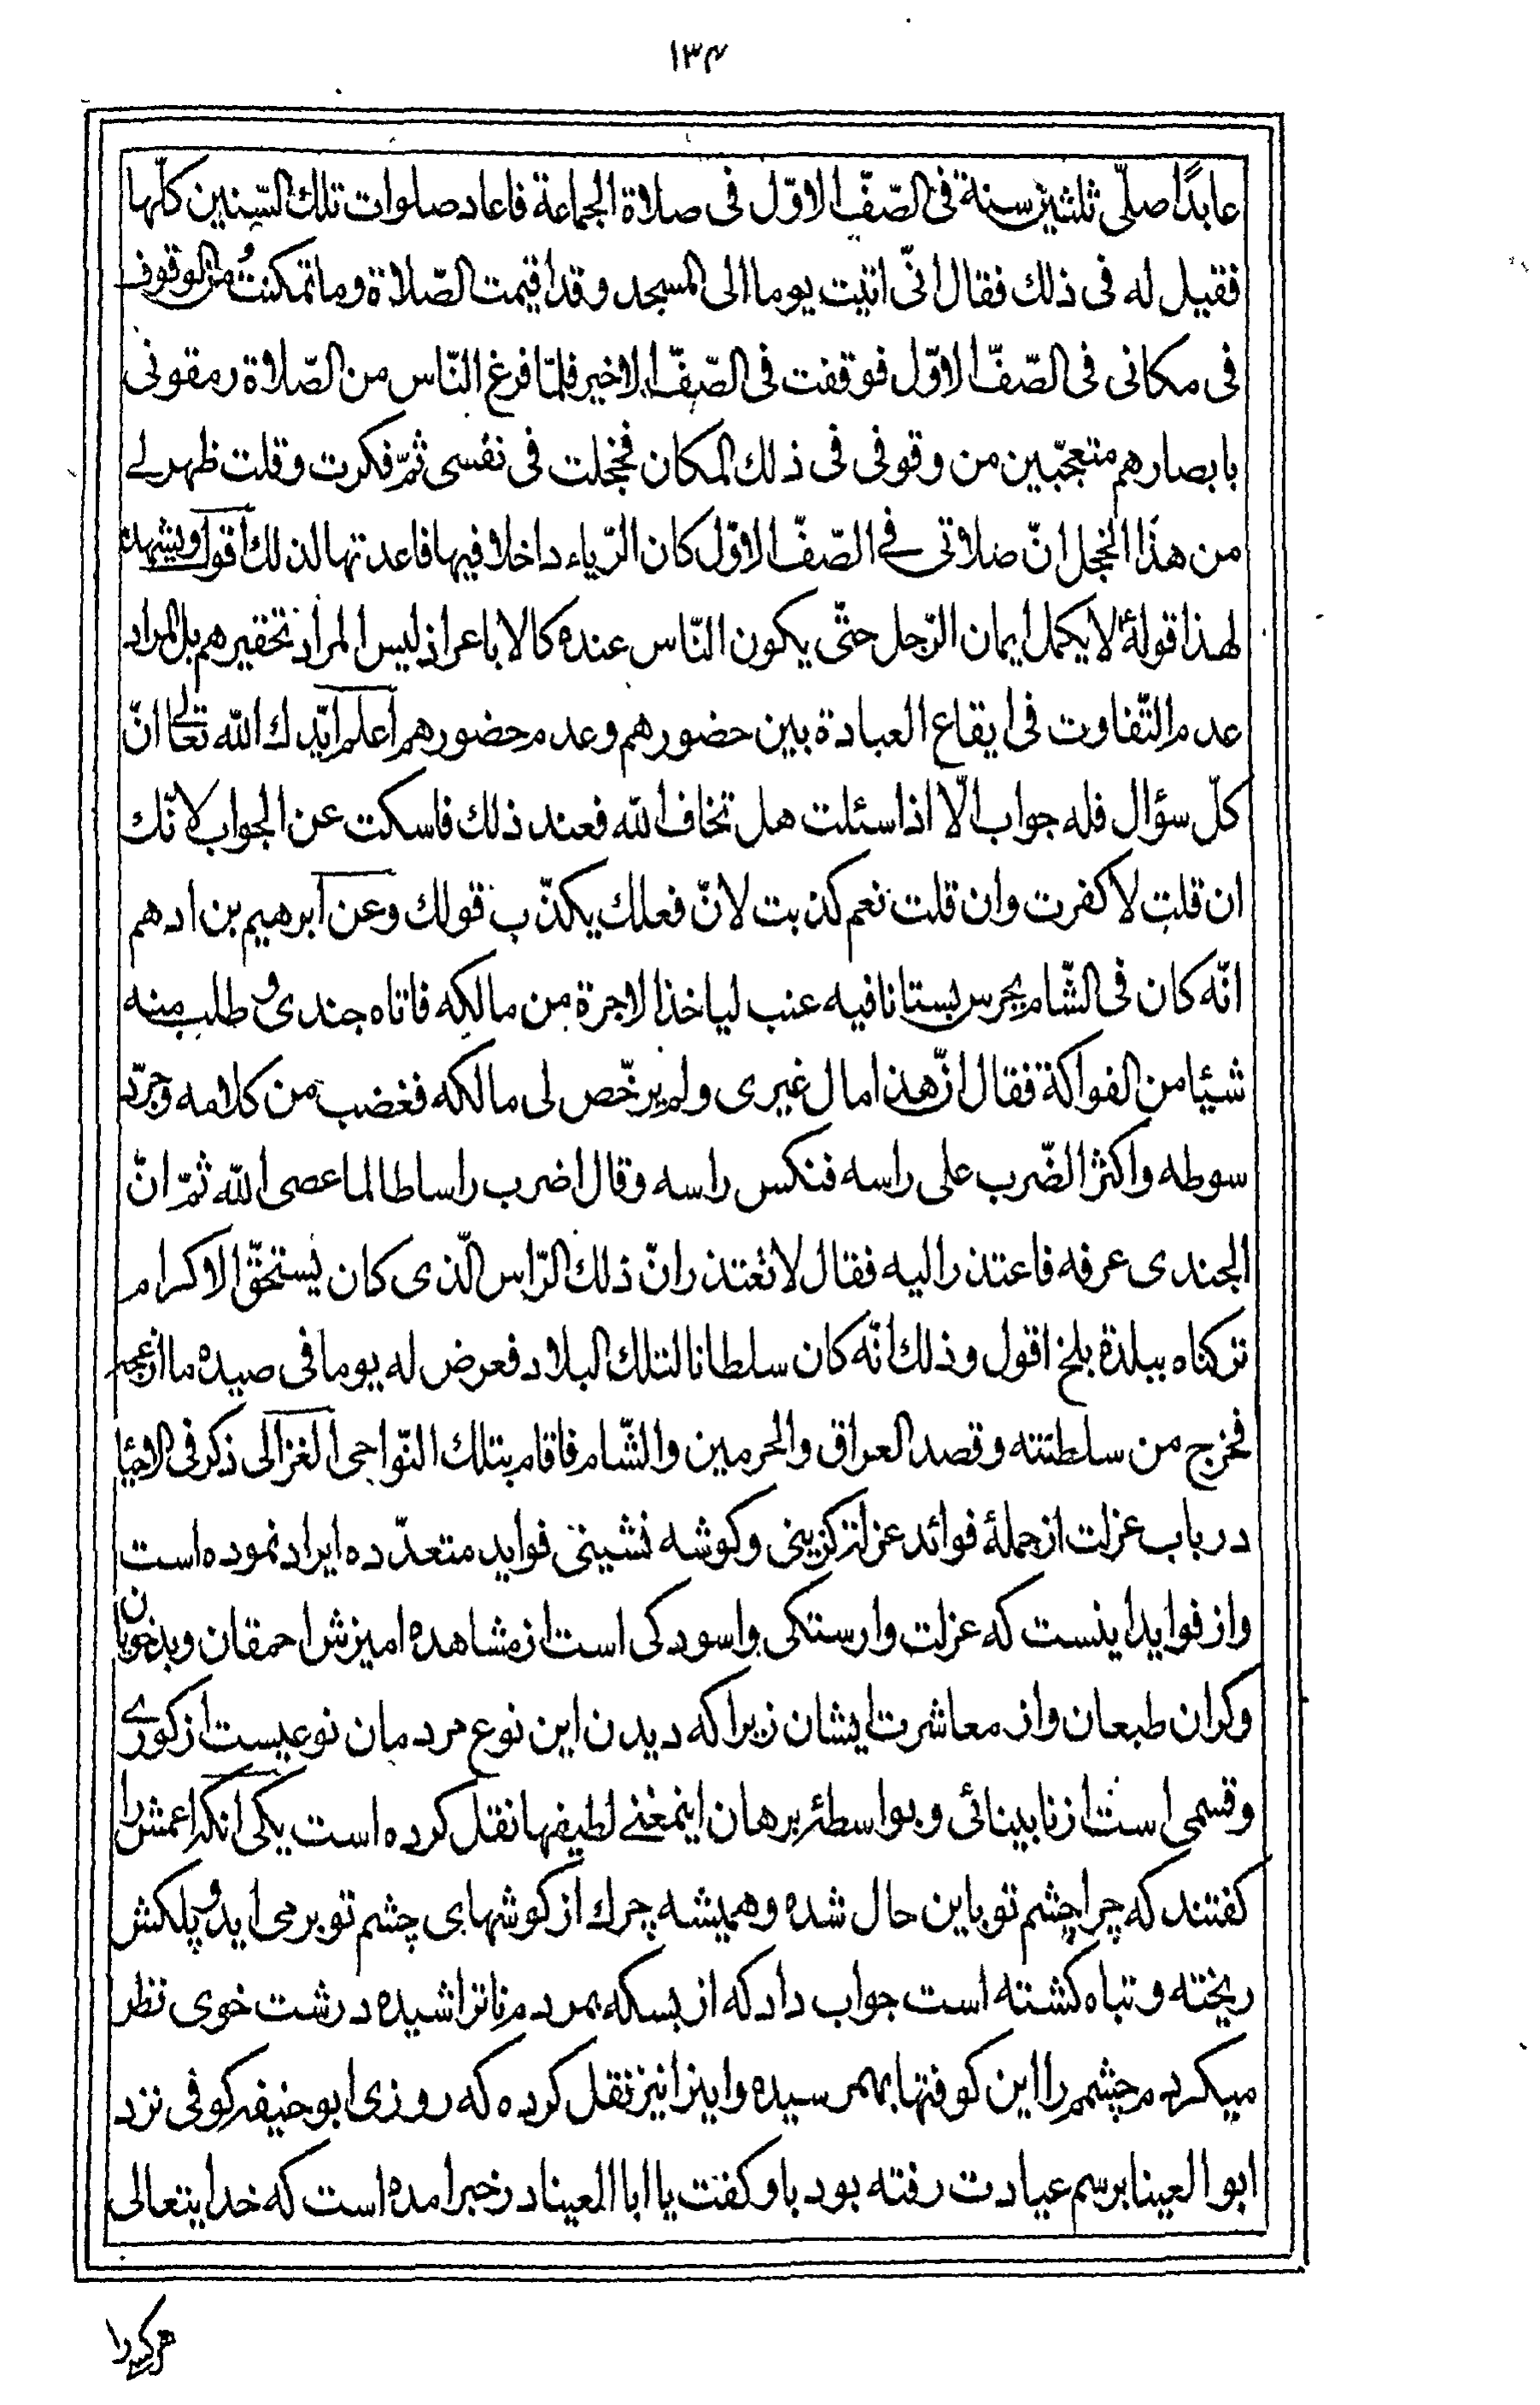 ۱۳۴
عابدًا صلّی ثلثین سنة فی الصّفّ الاوّل فی صلاة الجماعة فاعاد صلوات تلك السّنین کلّها
فقیل له فی ذلك فقال انّی اتیت یوما الی المسجد و قد اقیمت الصّلاة وما تمکنتُ من الوقوف
فی مکانی فی الصّفّ الاوّل فوقفت فی الصّفّ الاخیر فلمّا فرغ النّاس من الصّلاة رمقونی
بابصارهم متعجّبین من وقوفی فی ذلك المکان فخجلت فی نفسی ثمّ فکرت وقلت ظهر لے
من هذا الخجل انّ صلاتی فے الصّفّ الاوّل کان الرّیاء داخلا فیها فاعدتها لذلك اقول ویشهد
لهذا قوله لا یکمل ایمان الرّجل حتّی یکون النّاس عنده کالاباعر اذ لیس المراد تحقیرهم بل المراد
عدم التّفاوت فی ایقاع العبادة بین حضورهم وعدم حضورهم اعلم ایّدك الله تعالی انّ
کلّ سؤال فله جواب الّا اذا سئلت هل تخاف الله فعند ذلك فاسکت عن الجواب لانّك
ان قلت لا کفرت وان قلت نعم کذبت لانّ فعلك یکذّب قولك وعن ابرهیم بن ادهم
انّه کان فی الشّام یحرس بستانا فیه عنب لیاخذ الاجرة من مالکه فاتاه جندی و طلب منه
شیئا من الفواکة فقال انّ هذا مال غیری ولم یرخّص لی مالکه فغضب من کلامه وجرّد
سوطه واکثر الضّرب علی راسه فنکس راسه وقال اضرب راسا طالما عصی الله ثمّ انّ
الجندی عرفه فاعتذر الیه فقال لا تعتذر انّ ذلك الرّاس الّذی کان یستحقّ الاکرام
ترکناه ببلدة بلخ اقول وذلك انّه کان سلطانا لتلك البلاد فعرض له یوما فی صیده ما ازعجه
فخرج من سلطنته وقصد العراق والحرمین والشّام فاقام بتلك النّواحی الغزالی ذکر فی الاحیا
در باب عزلت از جملهٔ فوائد عزلت کزینی وکوشه نشینی فواید متعدّده ایراد نموده است
واز فواید اینست که عزلت وارستکی واسودکی است از مشاهده امیزش احمقان وبدخویان
وکران طبعان واز معاشرت ایشان زیرا که دیدن این نوع مردمان نوعیست از کوری
وقسمی است از نابینائی وبواسطهٔ برهان اینمعنے لطیفها نقل کرده است یکی انکه اعمش را
کفتند که چرا چشم تو باین حال شده وهمیشه چرك از کوشهای چشم تو برمی اید و پلکش
ریخته وتباه کشته است جواب داد که از بسکه بمردم ناتراشیده درشت خوی نظر
میکردم چشمم را این کوفتها بهمرسیده واینرا نیز نقل کرده که روزی ابو حنیفه کوفی نزد
ابو العینا برسم عیادت رفته بود باو کفت یا ابا العینا در خبر امده است که خدایتعالی
هر که را